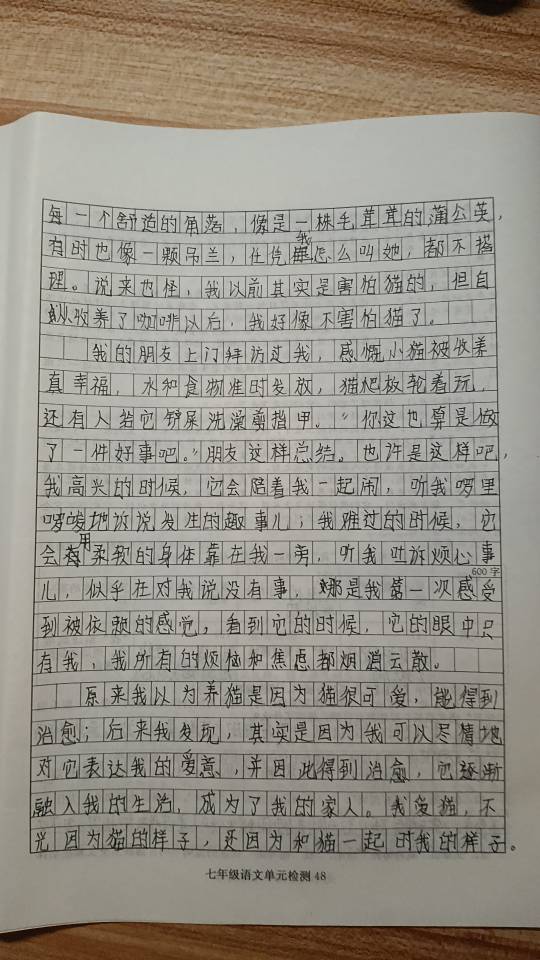 每一个舒适的角落，像是一株毛茸茸的蒲公英，
有时也像一颗吊兰，任凭我怎么叫她，都不搭
理。说来也怪，我以前其实是害怕猫的，但自
从收养了咖啡以后，我好像不害怕猫了。
我的朋友上门拜访过我，感慨小猫被收养
真幸福，水和食物准时发放，猫爬板轮着玩，
还有人当它铲屎洗澡剪指甲。“你这也算是做
了一件好事吧。”朋友这样总结。也许是这样吧，
我高兴的时候，它会陪着我一起闹，听我啰里
啰嗦地诉说发生的趣事儿；我难过的时候，它
会用柔软的身体靠在我一旁，听我吐诉烦心事
600字
儿，似乎在对我说没有事，那是我第一次感受
到被依赖的感觉，看到它的时候，它的眼中只
有我，我所有的烦恼和焦虑都烟消云散。
原来我以为养猫是因为猫很可爱，能得到
治愈；后来我发现，其实是因为我可以尽情地
对它表达我的爱意，并因此得到治愈，它逐渐
融入我的生活，成为了我的家人。我爱猫，不
光因为猫的样子，还因为和猫一起时我的样子。
七年级语文单元检测 48